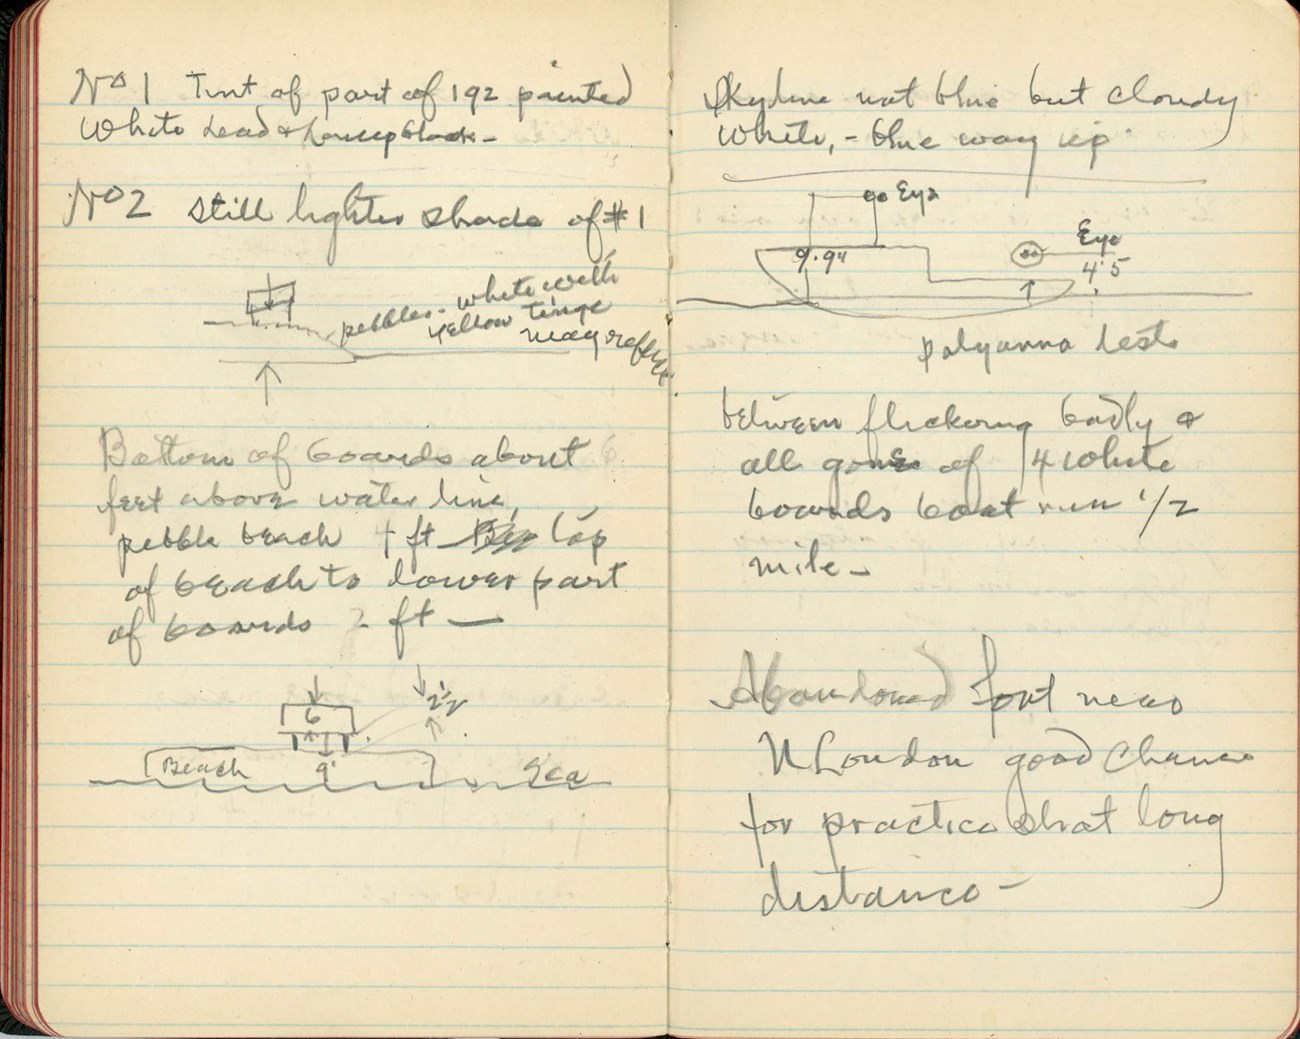 No 1 Tint of part of 192 painted
White Lead & Lampblack -
No 2 Still lighter shade of #1
pebbles - white with
yellow tinge
may reflect
Bottom of boards about 6
feet above water line,
pebble beach 4 ft top
of beach to lower part
of boards 2 ft —
6
2 1/2
Beach
9'
Sea
Skyline not blue but cloudy
White, - blue way up
Eye
9.94
Eye
4'5
polyanna tests
between flickering badly &
all gone of 4 White
boards boat run 1/2
mile -
Abandoned fort near
N London good chance
for practice shot long
distance -